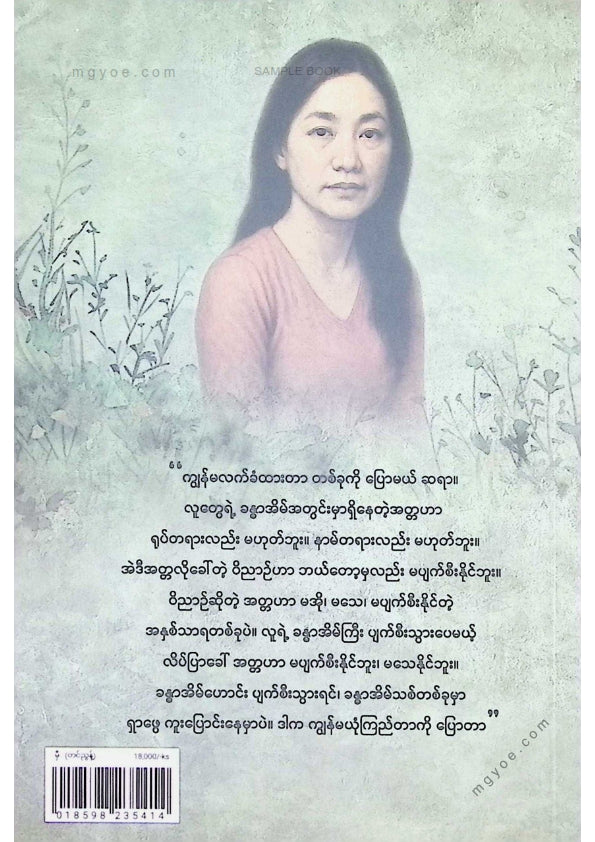 mgyoe.com
SAMPLE BOOK
“ကျွန်မလက်ခံထားတာ တစ်ခုကို ပြောမယ် ဆရာ။
လူတွေရဲ့ ခန္ဓာအိမ်အတွင်းမှာရှိနေတဲ့အတ္တဟာ
ရုပ်တရားလည်း မဟုတ်ဘူး။ နာမ်တရားလည်း မဟုတ်ဘူး။
အဲဒီအတ္တလိုခေါ်တဲ့ ဝိညာဉ်ဟာ ဘယ်တော့မှလည်း မပျက်စီးနိုင်ဘူး။
ဝိညာဉ်ဆိုတဲ့ အတ္တဟာ မအို၊ မသေ၊ မပျက်စီးနိုင်တဲ့
အနှစ်သာရတစ်ခုပဲ။ လူရဲ့ ခန္ဓာအိမ်ကြီး ပျက်စီးသွားပေမယ့်
လိပ်ပြာခေါ် အတ္တဟာ မပျက်စီးနိုင်ဘူး၊ မသေနိုင်ဘူး။
ခန္ဓာအိမ်ဟောင်း ပျက်စီးသွားရင်၊ ခန္ဓာအိမ်သစ်တစ်ခုမှာ
ရှာဖွေ ကူးပြောင်းနေမှာပဲ။ ဒါက ကျွန်မယုံကြည်တာကို ပြောတာ”
mgyoe.com
မှီ (တင်ညွန့်) 18,000/-ks
018598 235414